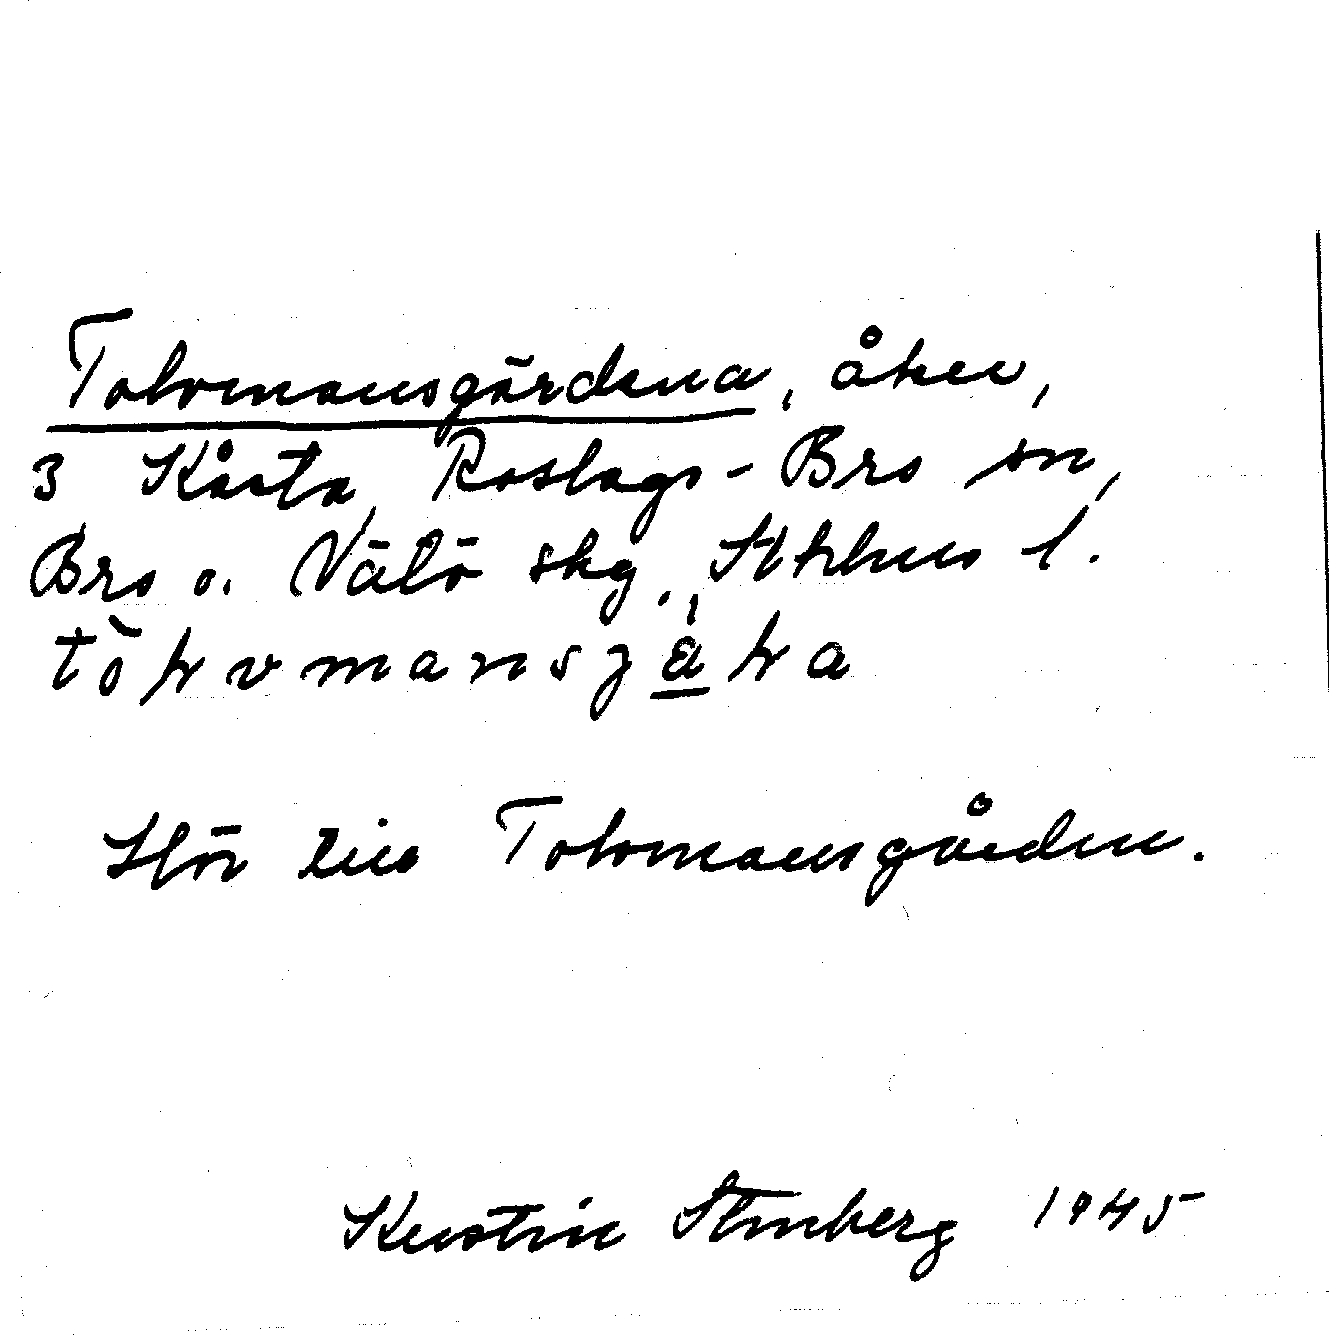 Tolvmansgärdena, åker,
3 Kåsta, Roslags-Bro sn,
Bro o. Vätö skg., Sthlms l.
Hör till Tolvmansgården.
Kerstin Stenberg 1945